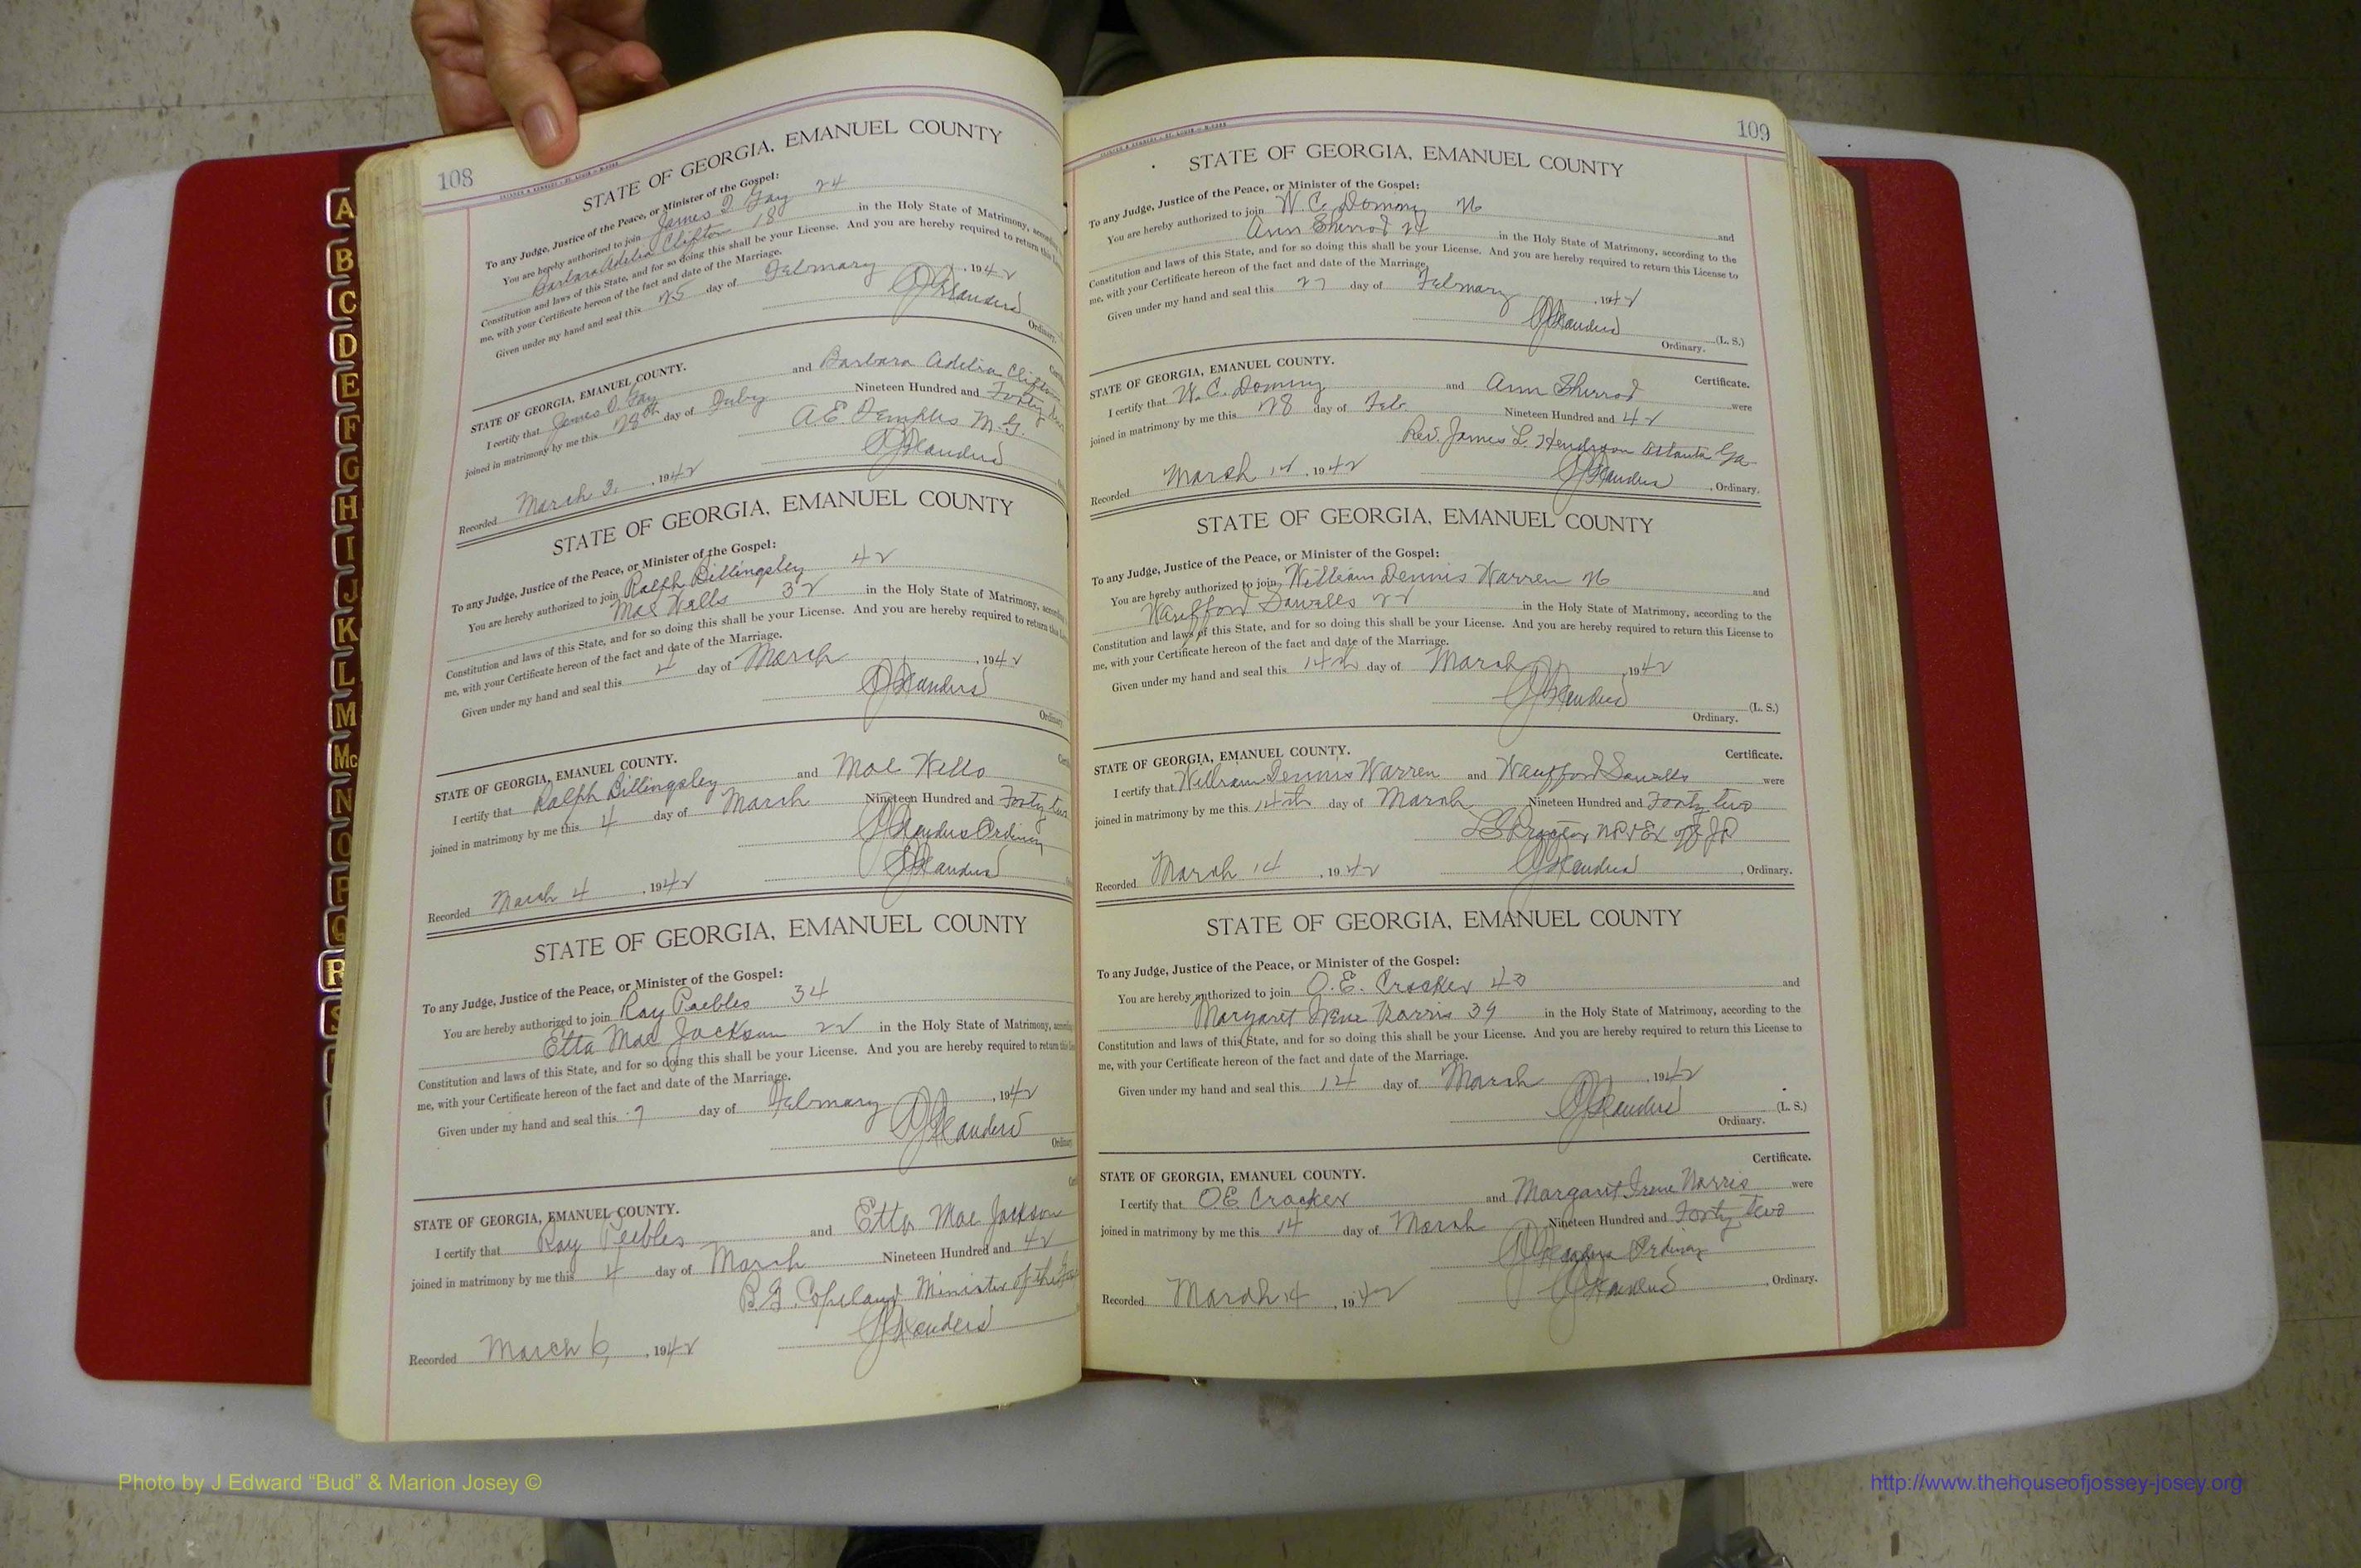 108
STATE OF GEORGIA, EMANUEL COUNTY
To any Judge, Justice of the Peace, or Minister of the Gospel:
You are hereby authorized to join James D. Gay 24
Barbara Adelia Clifton 18 in the Holy State of Matrimony,
Constitution and laws of this State, and for so doing this shall be your License. And you are hereby required to return this
me, with your Certificate hereon of the fact and date of the Marriage.
Given under my hand and seal this 25 day of February, 1942
Ordinary.
STATE OF GEORGIA, EMANUEL COUNTY.
I certify that James D. Gay and Barbara Adelia Clifton
joined in matrimony by me this 28th day of Nineteen Hundred and Forty
A.E. Temples M.G.
Recorded March 3, 1942
STATE OF GEORGIA, EMANUEL COUNTY
To any Judge, Justice of the Peace, or Minister of the Gospel:
You are hereby authorized to join Ralph Billingsley 42
Mae Wells 32 in the Holy State of Matrimony,
Constitution and laws of this State, and for so doing this shall be your License. And you are hereby required to return this
me, with your Certificate hereon of the fact and date of the Marriage.
Given under my hand and seal this 4 day of March, 1942
STATE OF GEORGIA, EMANUEL COUNTY.
I certify that Ralph Billingsley and Mae Wells
joined in matrimony by me this 4 day of March Nineteen Hundred and Forty two
Ordinary
Recorded March 4, 1942
STATE OF GEORGIA, EMANUEL COUNTY
To any Judge, Justice of the Peace, or Minister of the Gospel:
You are hereby authorized to join Ray Peebles 34
Etta Mae Jackson 22 in the Holy State of Matrimony,
Constitution and laws of this State, and for so doing this shall be your License. And you are hereby required to return this
me, with your Certificate hereon of the fact and date of the Marriage.
Given under my hand and seal this 7 day of February, 1942
STATE OF GEORGIA, EMANUEL COUNTY.
I certify that Ray Peebles and Etta Mae Jackson
joined in matrimony by me this 4 day of March Nineteen Hundred and 42
B.G. Copeland Minister of the
Recorded March 6, 1942
A
B
C
D
E
F
G
H
I
J
K
L
M
Mc
N
O
P
Q
R
S
109
STATE OF GEORGIA, EMANUEL COUNTY
To any Judge, Justice of the Peace, or Minister of the Gospel:
You are hereby authorized to join W. C. Dominy 26 and
Ann Sherrod 24 in the Holy State of Matrimony, according to the
Constitution and laws of this State, and for so doing this shall be your License. And you are hereby required to return this License to
me, with your Certificate hereon of the fact and date of the Marriage.
Given under my hand and seal this 27 day of February, 1942
(L. S.)
Ordinary.
STATE OF GEORGIA, EMANUEL COUNTY. Certificate.
I certify that W. C. Dominy and Ann Sherrod were
joined in matrimony by me this 28 day of Feb. Nineteen Hundred and 42
Rev. James L. Henderson Atlanta Ga
Recorded March 14, 1942 Ordinary.
STATE OF GEORGIA, EMANUEL COUNTY
To any Judge, Justice of the Peace, or Minister of the Gospel:
You are hereby authorized to join William Dennis Warren 26 and
22 in the Holy State of Matrimony, according to the
Constitution and laws of this State, and for so doing this shall be your License. And you are hereby required to return this License to
me, with your Certificate hereon of the fact and date of the Marriage.
Given under my hand and seal this 14th day of March, 1942
(L. S.)
Ordinary.
STATE OF GEORGIA, EMANUEL COUNTY. Certificate.
I certify that William Dennis Warren and were
joined in matrimony by me this 14th day of March Nineteen Hundred and Forty two
Recorded March 14, 1942 Ordinary.
STATE OF GEORGIA, EMANUEL COUNTY
To any Judge, Justice of the Peace, or Minister of the Gospel:
You are hereby authorized to join O. E. Crocker 40 and
Margaret Irene Norris 39 in the Holy State of Matrimony, according to the
Constitution and laws of this State, and for so doing this shall be your License. And you are hereby required to return this License to
me, with your Certificate hereon of the fact and date of the Marriage.
Given under my hand and seal this 14 day of March, 1942
(L. S.)
Ordinary.
STATE OF GEORGIA, EMANUEL COUNTY. Certificate.
I certify that OE Crocker and Margaret Irene Norris were
joined in matrimony by me this 14 day of March Nineteen Hundred and Forty Two
Ordinary
Recorded March 14, 1942 Ordinary.
Photo by J Edward "Bud" & Marion Josey ©
http://www.thehouseofjossey-josey.org